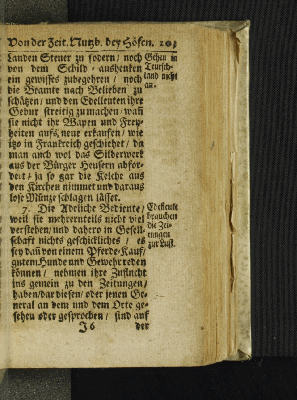 Von der Zeit. Nutzb. bey Höfen. 203
Landen Steuer zu fodern / noch
von dem Schild - aushenken
ein gewisses zubegehren / noch
die Beamte nach Belieben zu
schätzen / und den Edelleuten ihre
Gebur streitig zu machen / wañ
sie nicht ihr Wapen und Frey-
heiten aufs neue erkaufen / wie
itzo in Frankreich geschiehet / da
man auch wol das Silberwerk
aus der Bürger Heusern abfor-
dert / ja so gar die Kelche aus
den Kirchen nimmet und daraus
lose Münze schlagen lässet.
7. Die Adeliche Bediente /
weil sie mehrernteils nicht viel
verstehen / und dahero in Gesell-
schaft nichts geschickliches / es
sey dañ von einem Pferde-Kauf /
gutem Hunde und Gewehr reden
können / nehmen ihre Zuflucht
ins gemein zu den Zeitungen /
haben / dar diesen / oder jenen Ge-
neral an dem und dem Orte ge-
sehen oder gesprochen / sind auf
J 6 der
Gehen in
Teutsch-
land nicht
an.
Edelleute
brauchen
die Zei-
tungen
zur Lust.